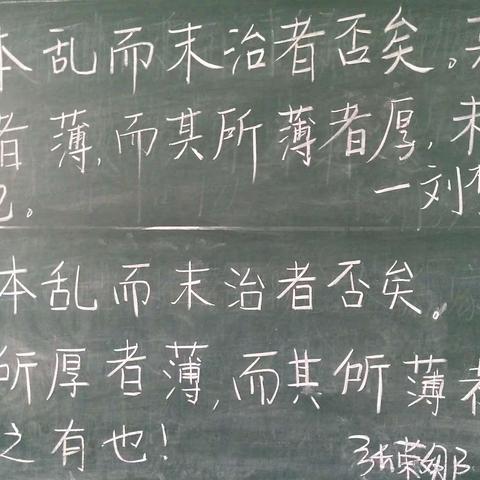 本乱而末治者否矣。
者薄,而其所薄者厚,未
也。
一刘
本乱而末治者否矣。
所厚者薄,而其所薄者
之有也!
张荣